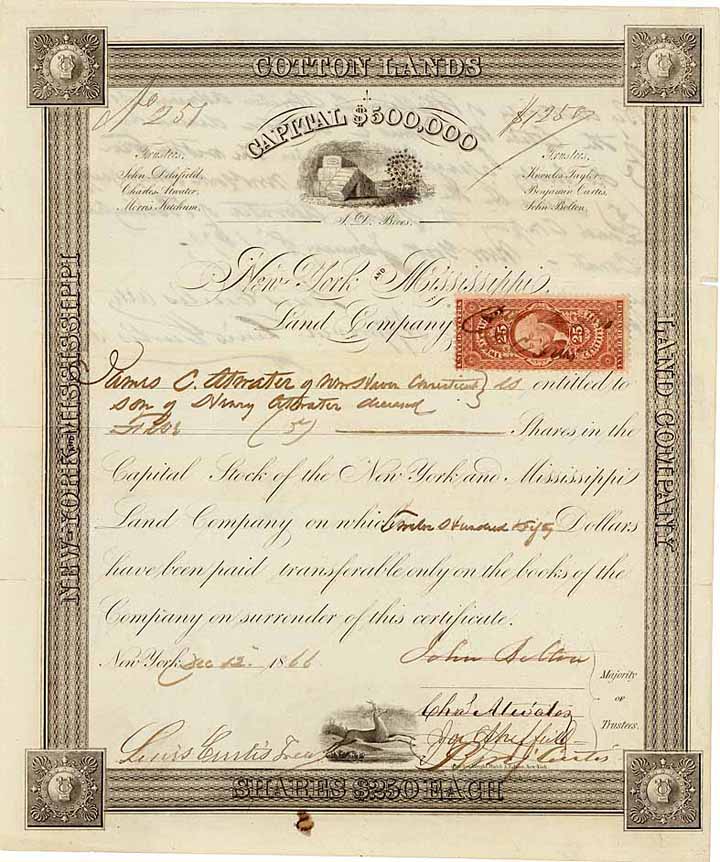 COTTON LANDS
No 251
$1250
CAPITAL $500,000
Trustees,
John Delafield,
Charles Atwater,
Morris Ketchum,
Trustees,
Knowles Taylor,
Benjamin Curtis,
John Bolton,
New-York AND Mississippi
Land Company
25
25
James C. Atwater of New Haven Connecticut
son of Henry Atwater deceased
is entitled to
Five (5) Shares in the
Capital Stock of the New York and Mississippi
Land Company on which Twelve Hundred fifty Dollars
have been paid transferable only on the books of the
Company on surrender of this certificate.
New York Dec 12 1866
John Bolton
Chas Atwater
Jos. Sheffield
Curtis
Majority
OF
Trustees.
Lewis Curtis Treas
NEW-YORK & MISSISSIPPI
LAND COMPANY
SHARES $250 EACH